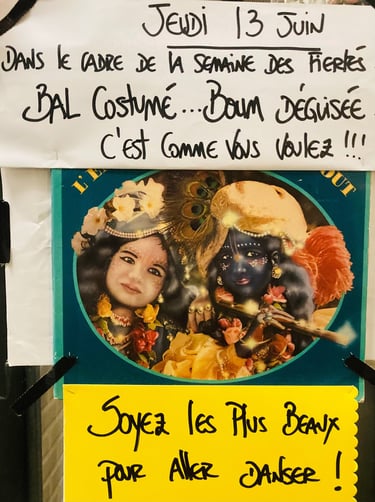 JEUDI 13 JUIN
DANS LE CADRE DE LA SEMAINE DES FIERTÉS
BAL COSTUMÉ...BOUM DÉGUISÉE
C'EST COMME VOUS VOULEZ !!!
L'E
OUT
SOYEZ LES PLUS BEAUX
POUR ALLER DANSER !